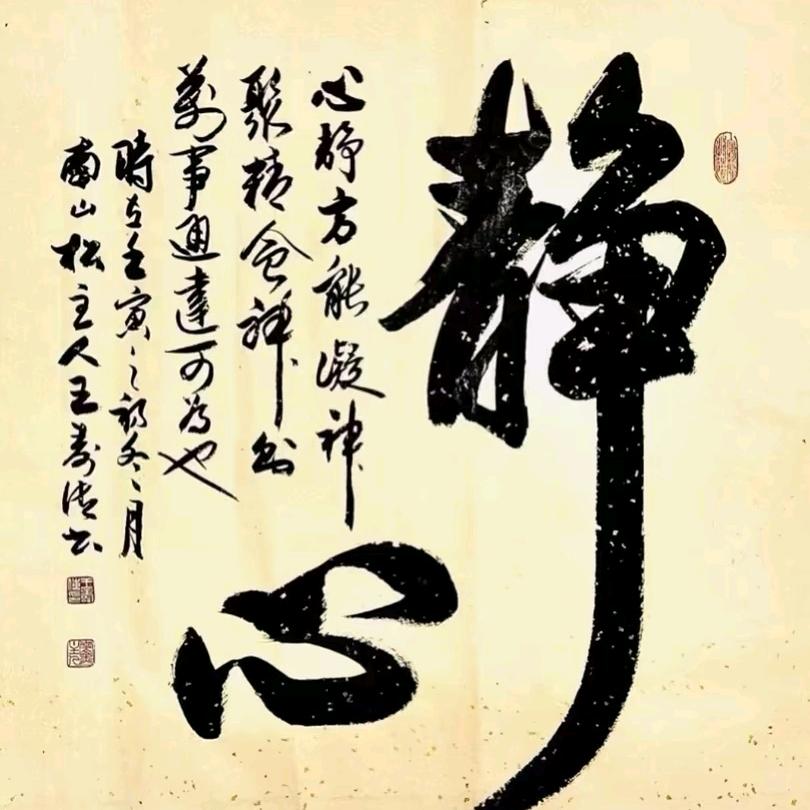 静心
心静方能凝神
聚精会神
萬事通達可為也
時在壬寅之初冬月
南山松主人王寿书